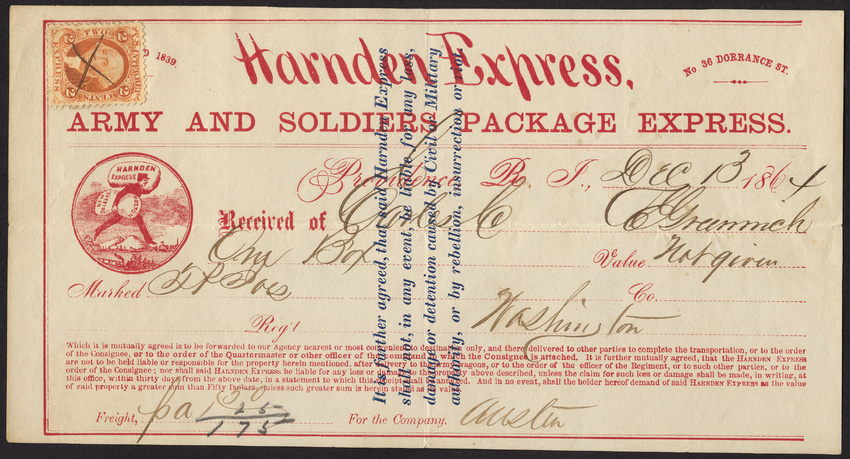 2 TWO 2
U.S. INTER. REV.
EXPRESS
CENTS
D 1839.
Harnden Express,
No 36 DORRANCE ST.
ARMY AND SOLDIERS PACKAGE EXPRESS.
HARNDEN
EXPRESS
Providence R. I., Dec 13 1864
Received of E Greenwich
One Box Value Not given
Marked Co.
Reg't Washington
Which it is mutually agreed is to be forwarded to our Agency nearest or most convenient to destination only, and there delivered to other parties to complete the transportation, or to the order
of the Consignee, or to the order of the Quartermaster or other officer of the command in which the Consignee is attached. It is further mutually agreed, that the HARNDEN EXPRESS
are not to be held liable or responsible for the property herein mentioned, after delivery to the Army wagons, or to the order of the officer of the Regiment, or to such other parties, or to the
order of the Consignee; nor shall said HARNDEN EXPRESS be liable for any loss or damage to the property above described, unless the claim for such loss or damage shall be made, in writing, at
this office, within thirty days from the above date, in a statement to which this receipt shall be annexed. And in no event, shall the holder hereof demand of said HARNDEN EXPRESS as the value
of said property a greater sum than Fifty Dollars, unless such greater sum is herein stated as its value.
Freight, pa 150
25
175
For the Company. Austin
It is further agreed, that said Harnden Express
shall not, in any event, be liable for any loss,
damage or detention caused by Civil or Military
authority, or by rebellion, insurrection or riot.